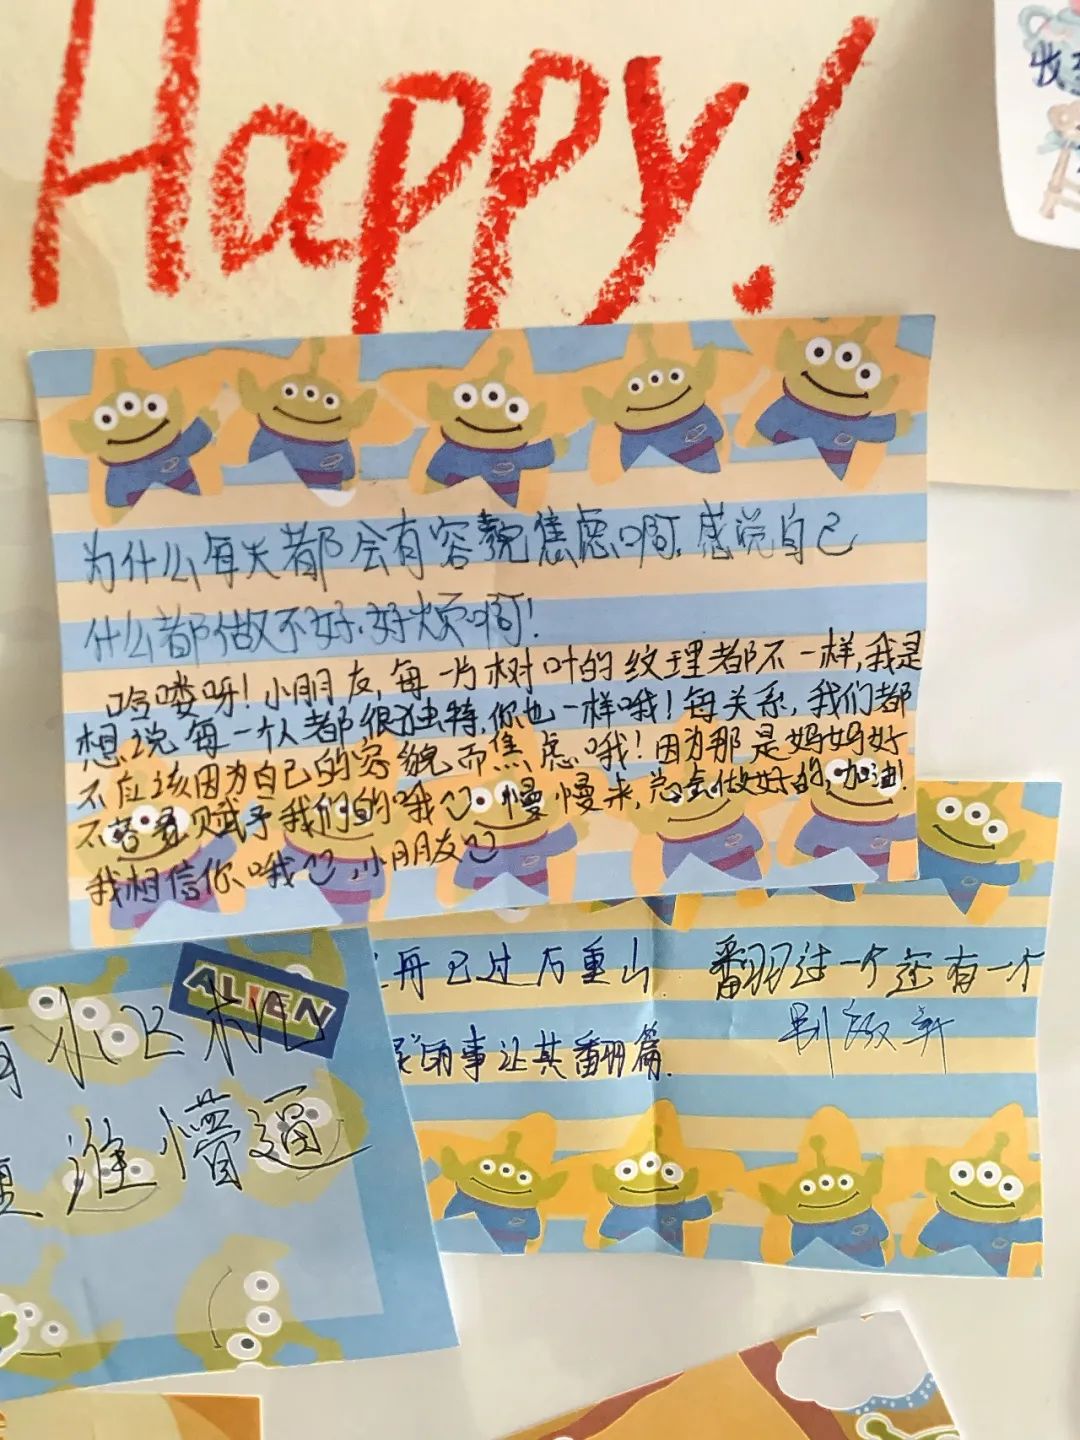 Happy!
收
为什么每天都会有容貌焦虑啊,感觉自己
什么都做不好,好烦啊!
哈喽呀!小朋友,每一片树叶的纹理都不一样,我是
想说每一个人都很独特,你也一样哦!每关系,我们都
不应该因为自己的容貌而焦虑哦!因为那是妈妈好
不容易赋予我们的哦 慢慢来,总会做好的,加油!
我相信你哦,小朋友
舟已过万重山. 翻过一个还有一个
事让其翻篇. 别放弃
ALIEN
谁懵逼